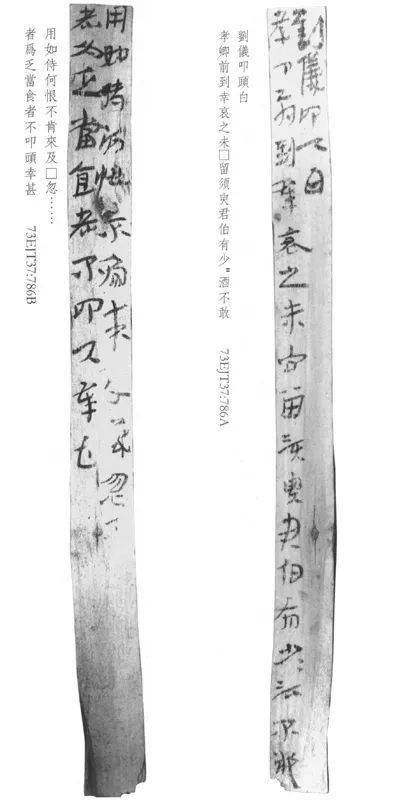 劉儀叩頭白
孝卿前到幸哀之未□留須臾君伯有少〓酒不敢
73EJT37:786A
用如侍何恨不肯來及□忽……
者爲乏當食者不叩頭幸甚
73EJT37:786B